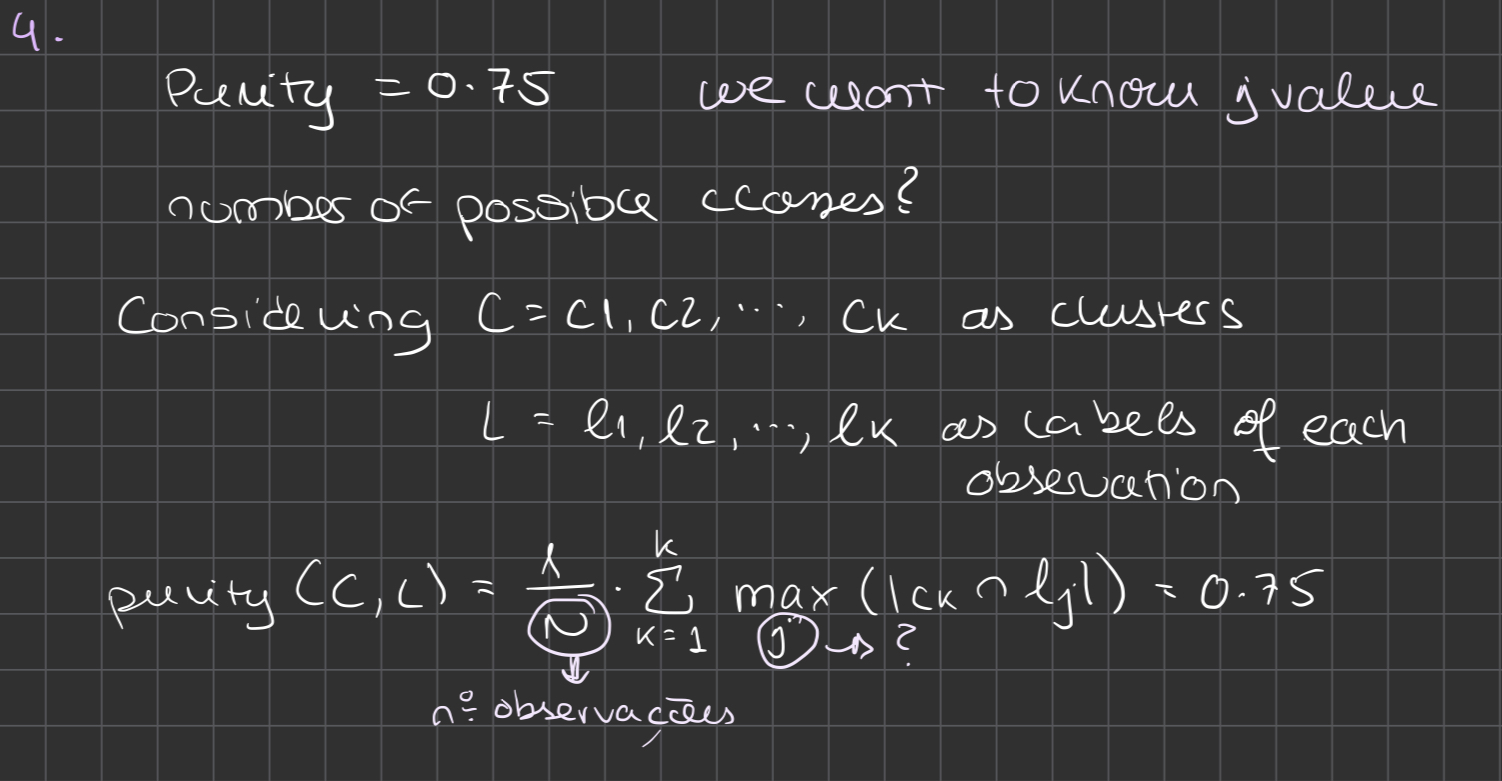 4.
Purity = 0.75 we want to know j value
number of possible classes?
Considering C = C1, C2, ..., CK as clusters
L = l1, l2, ..., lK as labels of each
observation
purity (C, L) = 1/N · K∑K=1 max j (|CK ∩ lj|) = 0.75
j → ?
nº observações